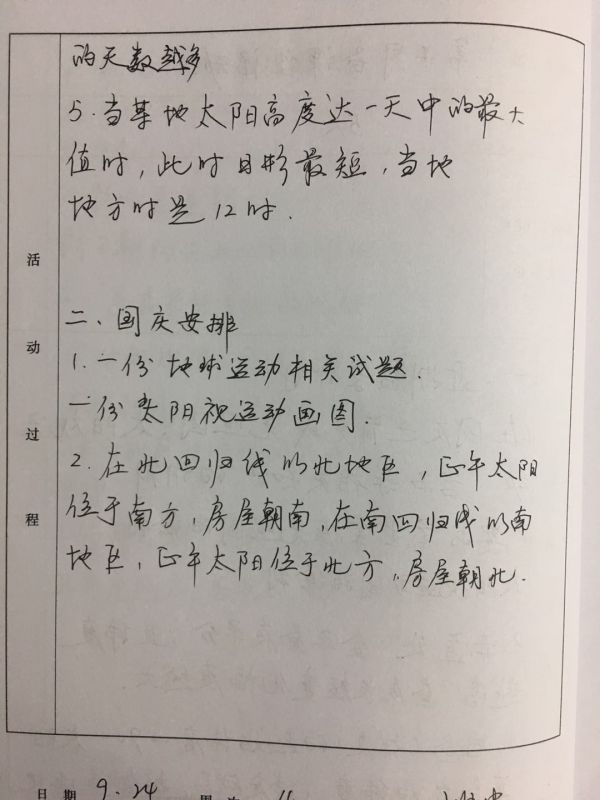 的天数越多
5.当某地太阳高度达一天中的最大
值时,此时日影最短,当地
地方时是12时.
二、国庆安排
1.一份地球运动相关试题.
一份太阳视运动画图.
2.在北回归线以北地区,正午太阳
位于南方,房屋朝南,在南回归线以南
地区,正午太阳位于北方,房屋朝北.
活动过程
日期 9.24